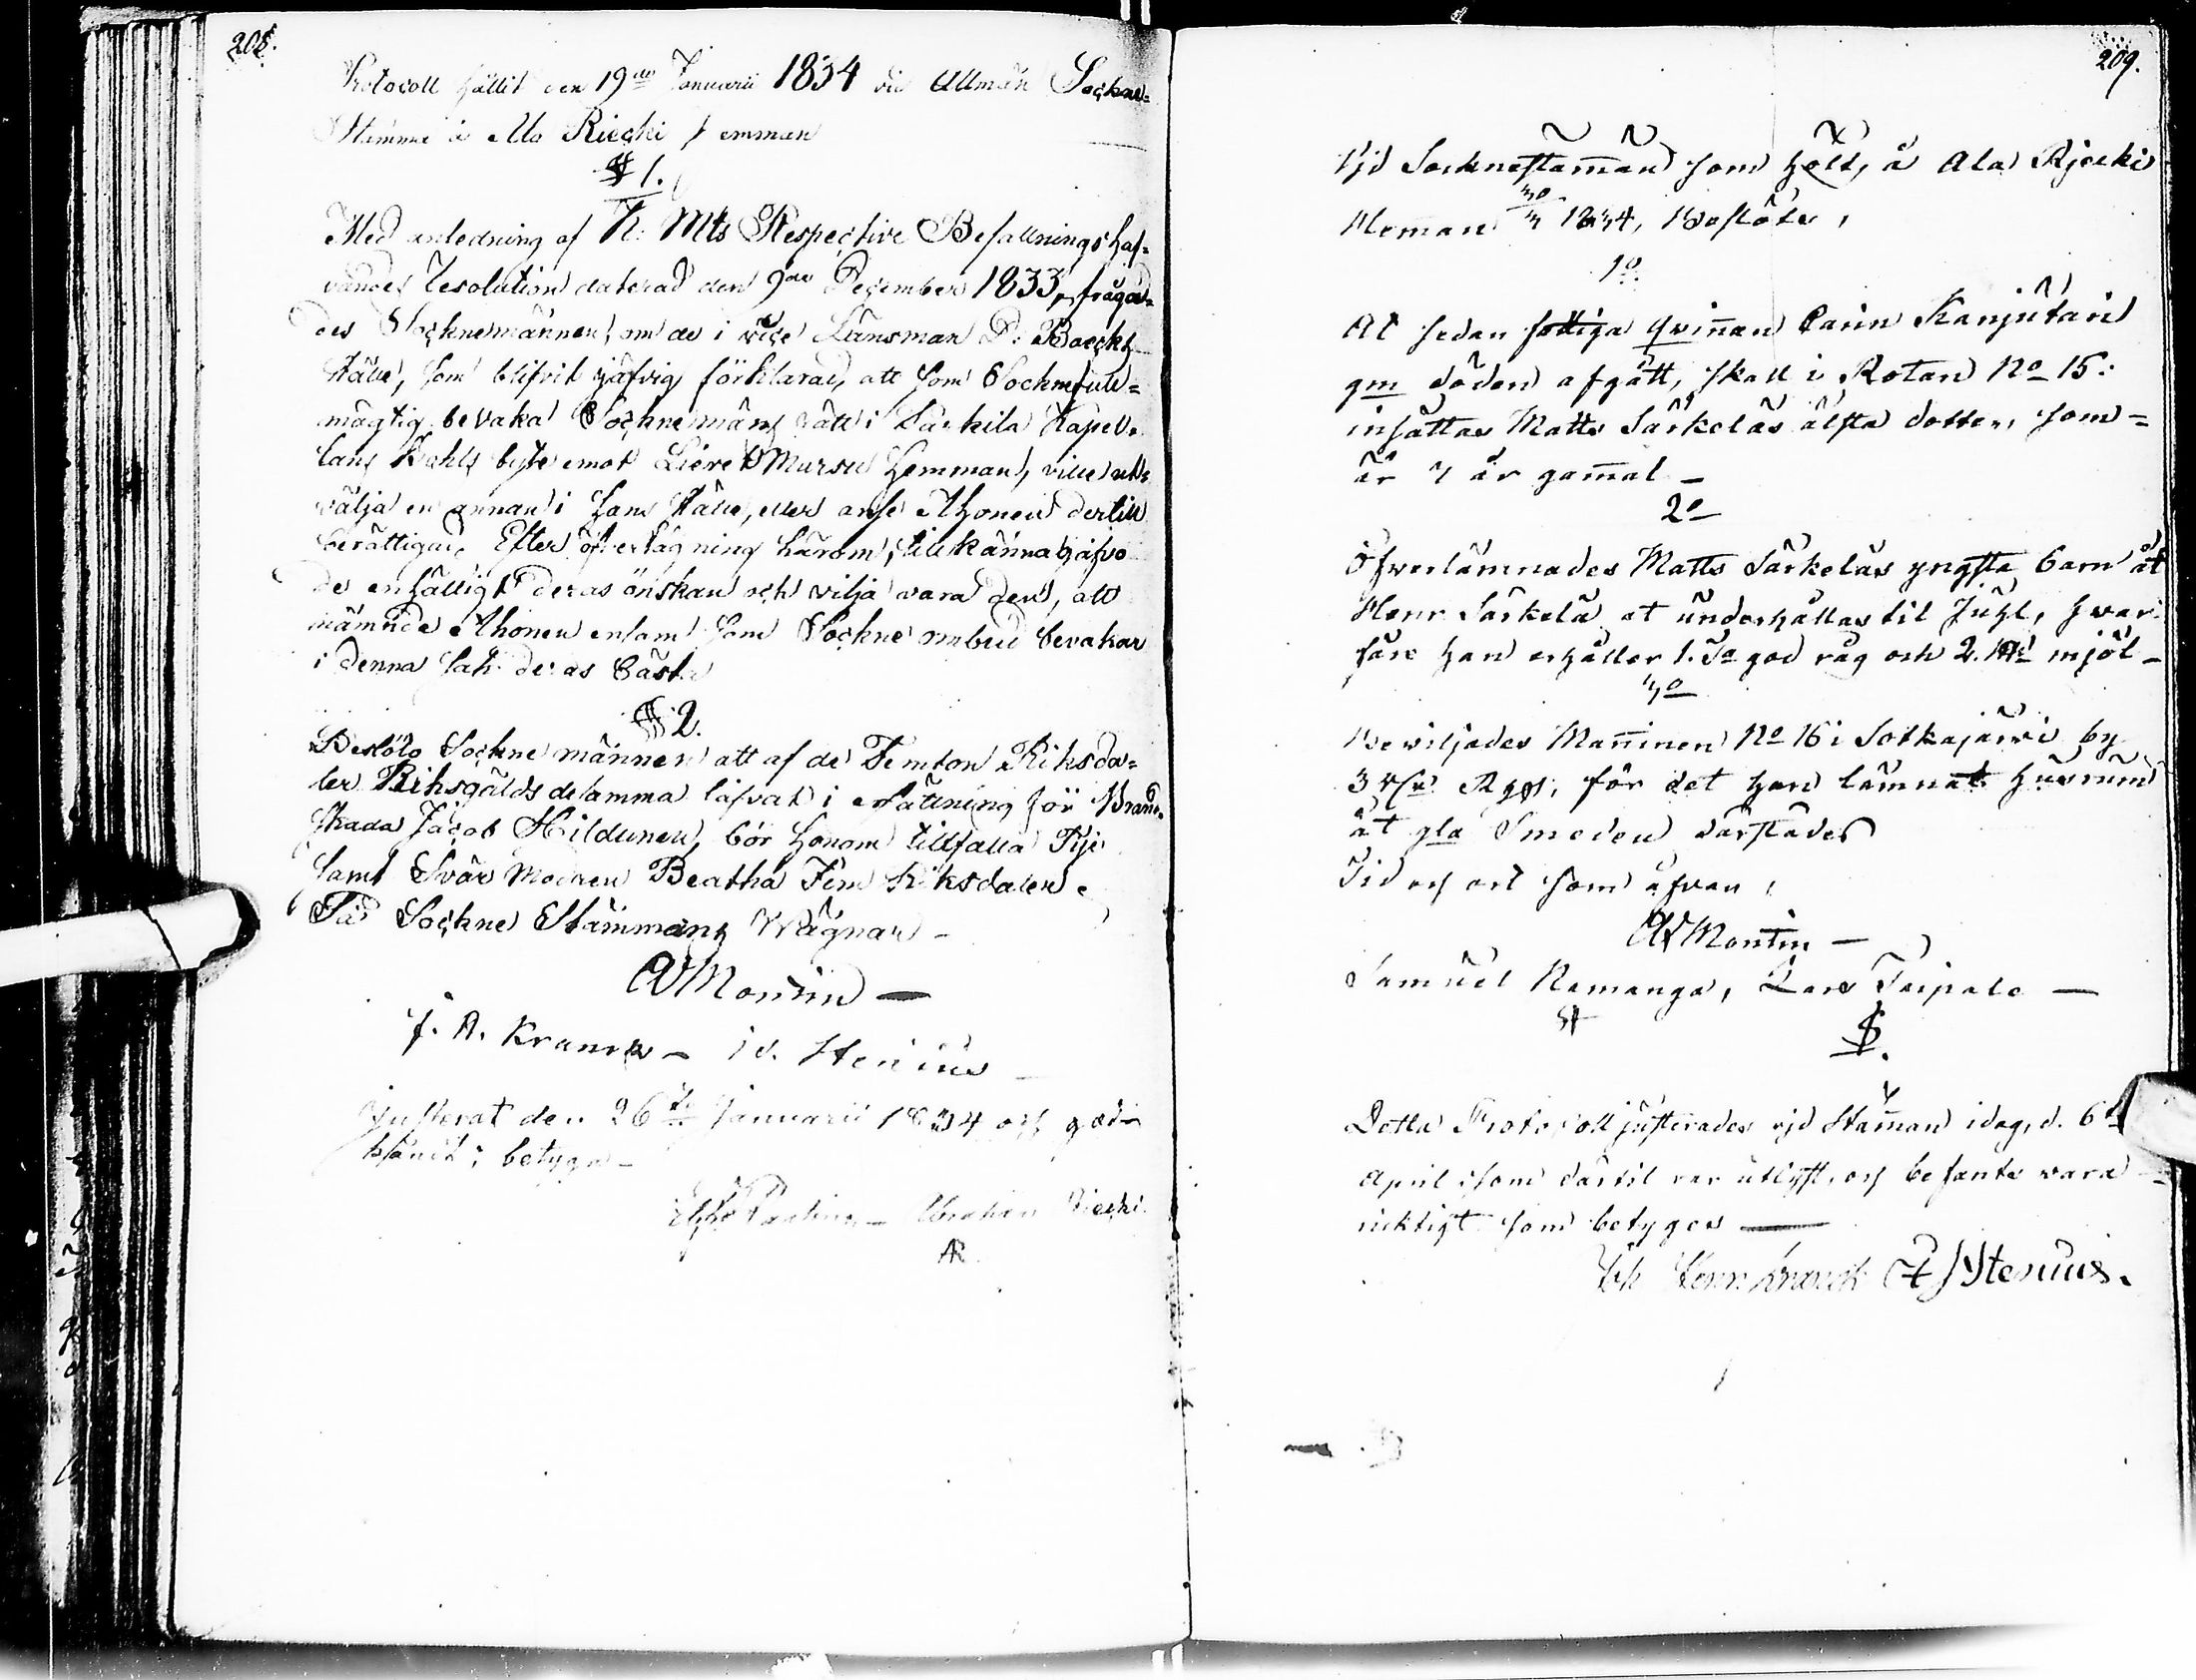 208.
Protocoll hållit den 19de Januarii 1834 vid Allmän Sockne-
Stämma å Ala Riecki hemman
§ 1.
Med anledning af K: Mts Respective Befallningshaf-
vandes Resolution daterad den 9de December 1833, frågad-
des Socknemännen, om de i vice Länsman D: Boecks
ställe, som blifvit jäfvig förklarad, att som Sockenfull-
mägtig bevaka Socknemäns rätt i Särkilä Kapel-
lans byte emot Mursu hemman, ville ut-
välja en annan i hans ställe, eller anse Ahonen dertill
berättigad. Efter öfverlägning härom, tillkännagåfvo
de enhälligt deras önskan och vilja vara den, att
nämnde Ahonen ensam som Sockne ombud bevakar
i denna sak deras bästa
§ 2.
Beslöto Socknemännen att af de Femton Riksda-
ler Riksgälds desamma låfvat i ersättning för Brand-
skada Jacob Hildunen, bör honom tillfalla Tije
samt Svär Modren Beatha Fem Riksdaler.
På Sockne Stämmans Wägnar -
Montin —
J. A. Kranck - Stenius
Justerat den 26te Januarii 1834 och god-
känt; betyga -
Riecki
AR
209.
Vid Socknestamman som hölt, å Ala Rjecki
Heman 30/3 1834, Beslöts,
1o.
At sedan fattiga qvinnan Carin Kanjutain
gm döden afgått, skall i Rotan No 15:
insättas Matts Särkeläs älsta dotter, som
är 7 år gamal —
2o
Öfwerlämnades Matts Särkeläs yngsta barn åt
Henr Särkelä at underhållas til Juhl, hwar-
före han erhåller 1. Ta god råg och 2. mjöl —
3o
Bewiljades Manninen No 16 i Sotkajärwi by
3 Rgs; för det han lämnat husrum
åt gla Smeden därstädes
Tid och ort som åfvan,
Montin —
Samuel Namanga, Lars Taipale —
Detta Protocoll justerades vid Stämman idag, d. 6te
April som därtil var utlyst, och befants wara
ricktigt som betyges —
Joh Henr Kranck Stenius.